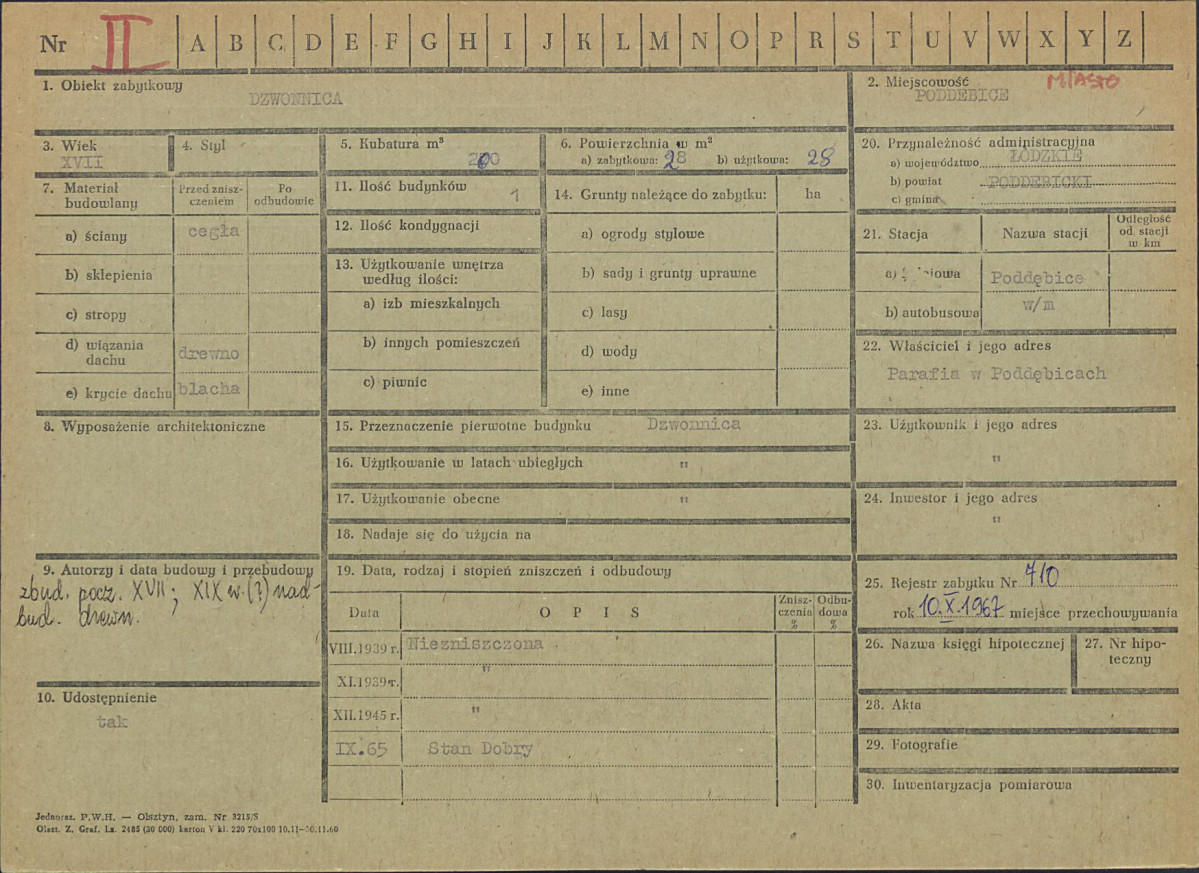 Nr II A B C D E F G H I J K L M N O P R S T U V W X Y Z
1. Obiekt zabytkowy
DZWONNICA
2. Miejscowość MIASTO
PODDEBICE
3. Wiek
XVII
4. Styl
5. Kubatura m³
200
6. Powierzchnia w m²
a) zabytkowa: 28 b) użytkowa: 28
20. Przynależność administracyjna
a) województwo ŁÓDZKIE
b) powiat PODDĘBICKI
c) gmina
7. Materiał budowlany
Przed zniszczeniem
Po odbudowie
a) ściany cegła
b) sklepienia
c) stropy
d) wiązania dachu drewno
e) krycie dachu blacha
11. Ilość budynków 1
12. Ilość kondygnacji
13. Użytkowanie wnętrza
według ilości:
a) izb mieszkalnych
b) innych pomieszczeń
c) piwnic
14. Grunty należące do zabytku: ha
a) ogrody stylowe
b) sady i grunty uprawne
c) lasy
d) wody
e) inne
21. Stacja Nazwa stacji
Odległość
od. stacji
w km
a) Poddębice
b) autobusowa w/m
22. Właściciel i jego adres
Parafia w Poddębicach
8. Wyposażenie architektoniczne
15. Przeznaczenie pierwotne budynku Dzwonnica
16. Użytkowanie w latach ubiegłych "
17. Użytkowanie obecne "
18. Nadaje się do użycia na
23. Użytkownik i jego adres
"
24. Inwestor i jego adres
"
9. Autorzy i data budowy i przebudowy
zbud. pocz. XVII; XIX w. (?) nad-
bud. drewn.
10. Udostępnienie
tak
19. Data, rodzaj i stopień zniszczeń i odbudowy
Data OPIS
Znisz-
czenia
%
Odbu-
dowa
%
VIII.1939 r. Niezniszczona
XI.1939 r. "
XII.1945 r. "
IX.65 Stan Dobry
25. Rejestr zabytku Nr 710
rok 10.X.1967 miejsce przechowywania
26. Nazwa księgi hipotecznej
27. Nr hipo-
teczny
28. Akta
29. Fotografie
30. Inwentaryzacja pomiarowa
Jednoraz. P.W.H. — Olsztyn, zam. Nr 3215/S
Olszt. Z. Graf. Lz. 2485 (30 000) karton V kl. 220 70x100 10.11—30.11.60